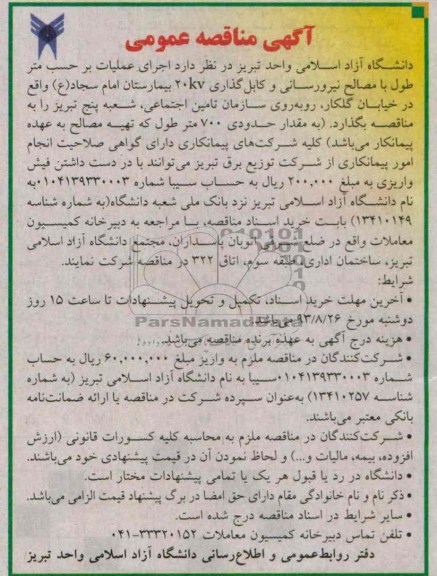 آگهی مناقصه عمومی
دانشگاه آزاد اسلامی واحد تبریز در نظر دارد اجرای عملیات بر حسب متر
طول با مصالح نیرورسانی و کابل‌گذاری ۲۰kv بیمارستان امام سجاد(ع) واقع
در خیابان گلکار، روبه‌روی سازمان تامین اجتماعی، شعبه پنج تبریز را به
مناقصه بگذارد. (به مقدار حدودی ۷۰۰ متر طول که تهیه مصالح به عهده
پیمانکار می‌باشد) کلیه شرکت‌های پیمانکاری دارای گواهی صلاحیت انجام
امور پیمانکاری از شرکت توزیع برق تبریز می‌توانند با در دست داشتن فیش
واریزی به مبلغ ۲۰۰,۰۰۰ ریال به حساب سیبا شماره ۰۱۰۴۱۳۹۳۳۰۰۰۳به
نام دانشگاه آزاد اسلامی تبریز نزد بانک ملی شعبه دانشگاه(به شماره شناسه
۱۳۴۱۰۱۴۹) بابت خرید اسناد مناقصه، با مراجعه به دبیرخانه کمیسیون
معاملات واقع در ضلع اتوبان پاسداران، مجتمع دانشگاه آزاد اسلامی
تبریز، ساختمان اداری، طبقه سوم، اتاق ۳۲۲ در مناقصه شرکت نمایند.
شرایط:
• آخرین مهلت خرید اسناد، تکمیل و تحویل پیشنهادات تا ساعت ۱۵ روز
دوشنبه مورخ ۹۳/۸/۲۶ می‌باشد.
ParsNamadData
• هزینه درج آگهی به عهده برنده مناقصه می‌باشد.
• شرکت‌کنندگان در مناقصه ملزم به واریز مبلغ ۶۰,۰۰۰,۰۰۰ ریال به حساب
شماره ۰۱۰۴۱۳۹۳۳۰۰۰۳سیبا به نام دانشگاه آزاد اسلامی تبریز (به شماره
شناسه ۱۳۴۱۰۲۵۷) به‌عنوان سپرده شرکت در مناقصه یا ارائه ضمانت‌نامه
بانکی معتبر می‌باشند.
• شرکت‌کنندگان در مناقصه ملزم به محاسبه کلیه کسورات قانونی (ارزش
افزوده، بیمه، مالیات و...) و لحاظ نمودن آن در قیمت پیشنهادی خود می‌باشند.
• دانشگاه در رد یا قبول هر یک یا تمامی پیشنهادات مختار است.
• ذکر نام و نام خانوادگی مقام دارای حق امضا در برگ پیشنهاد قیمت الزامی می‌باشد.
• سایر شرایط در اسناد مناقصه درج شده است.
• تلفن تماس دبیرخانه کمیسیون معاملات ۳۳۳۲۰۱۵۲-۰۴۱
دفتر روابط‌عمومی و اطلاع‌رسانی دانشگاه آزاد اسلامی واحد تبریز